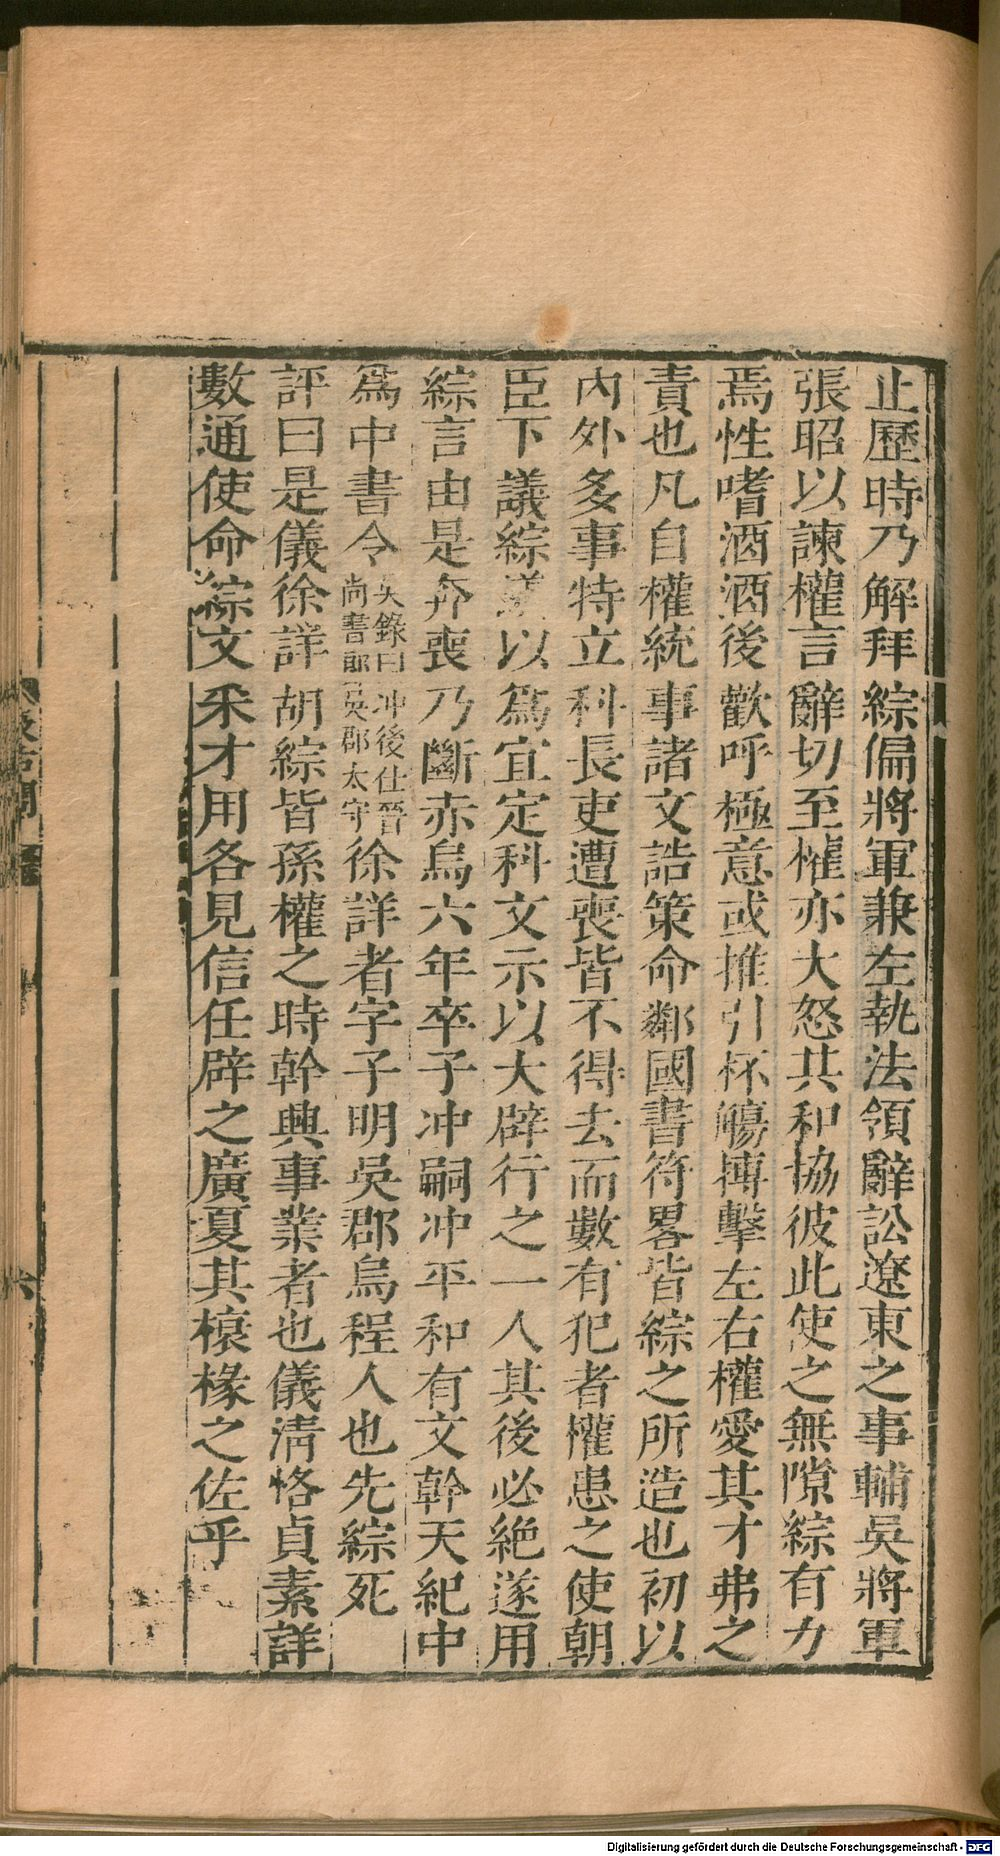 止歷時乃解拜綜偏將軍兼左執法領辭訟遼東之事輔吳將軍
張昭以諫權言辭切至權亦大怒其和協彼此使之無隙綜有力
焉性嗜酒酒後歡呼極意或推引杯觴搏擊左右權愛其才弗之
責也凡自權統事諸文誥策命鄰國書符畧皆綜之所造也初以
內外多事特立科長吏遭喪皆不得去而數有犯者權患之使朝
臣下議綜議以爲宜定科文示以大辟行之一人其後必絶遂用
綜言由是奔喪乃斷赤烏六年卒子冲嗣冲平和有文幹天紀中
爲中書令吳錄曰冲後仕晉尚書郎吳郡太守徐詳者字子明吳郡烏程人也先綜死
評曰是儀徐詳胡綜皆孫權之時幹興事業者也儀清恪貞素詳
數通使命綜文采才用各見信任辟之廣夏其榱椽之佐乎
六
Digitalisierung gefördert durch die Deutsche Forschungsgemeinschaft - DFG